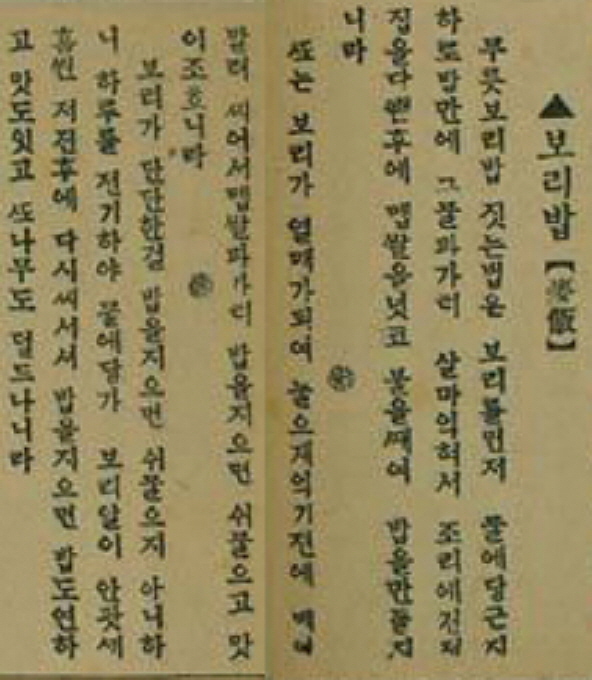 ▲보리밥【麥飯】
무릇보리밥 짓는법은 보리를먼저 물에당근지
하로밤만에 그물과가티 살마익혀서 조리에건져
집을다뺀후에 멥쌀을넛코 불을때여 밥을만들지
니라
ᄯᅩ는 보리가 열매가되여 눌으게익기전에 베여
말려 씨어서멥쌀과가티 밥을지으면 쉬물으고 맛
이조흐니라
보리가 단단한걸 밥을지으면 쉬물으지 아니하
니 하루를 전기하야 물에담가 보리알이 안팟게
흠씬 저진후에 다시씨서서 밥을지으면 밥도연하
고 맛도잇고 ᄯᅩ나무도 덜드나니라